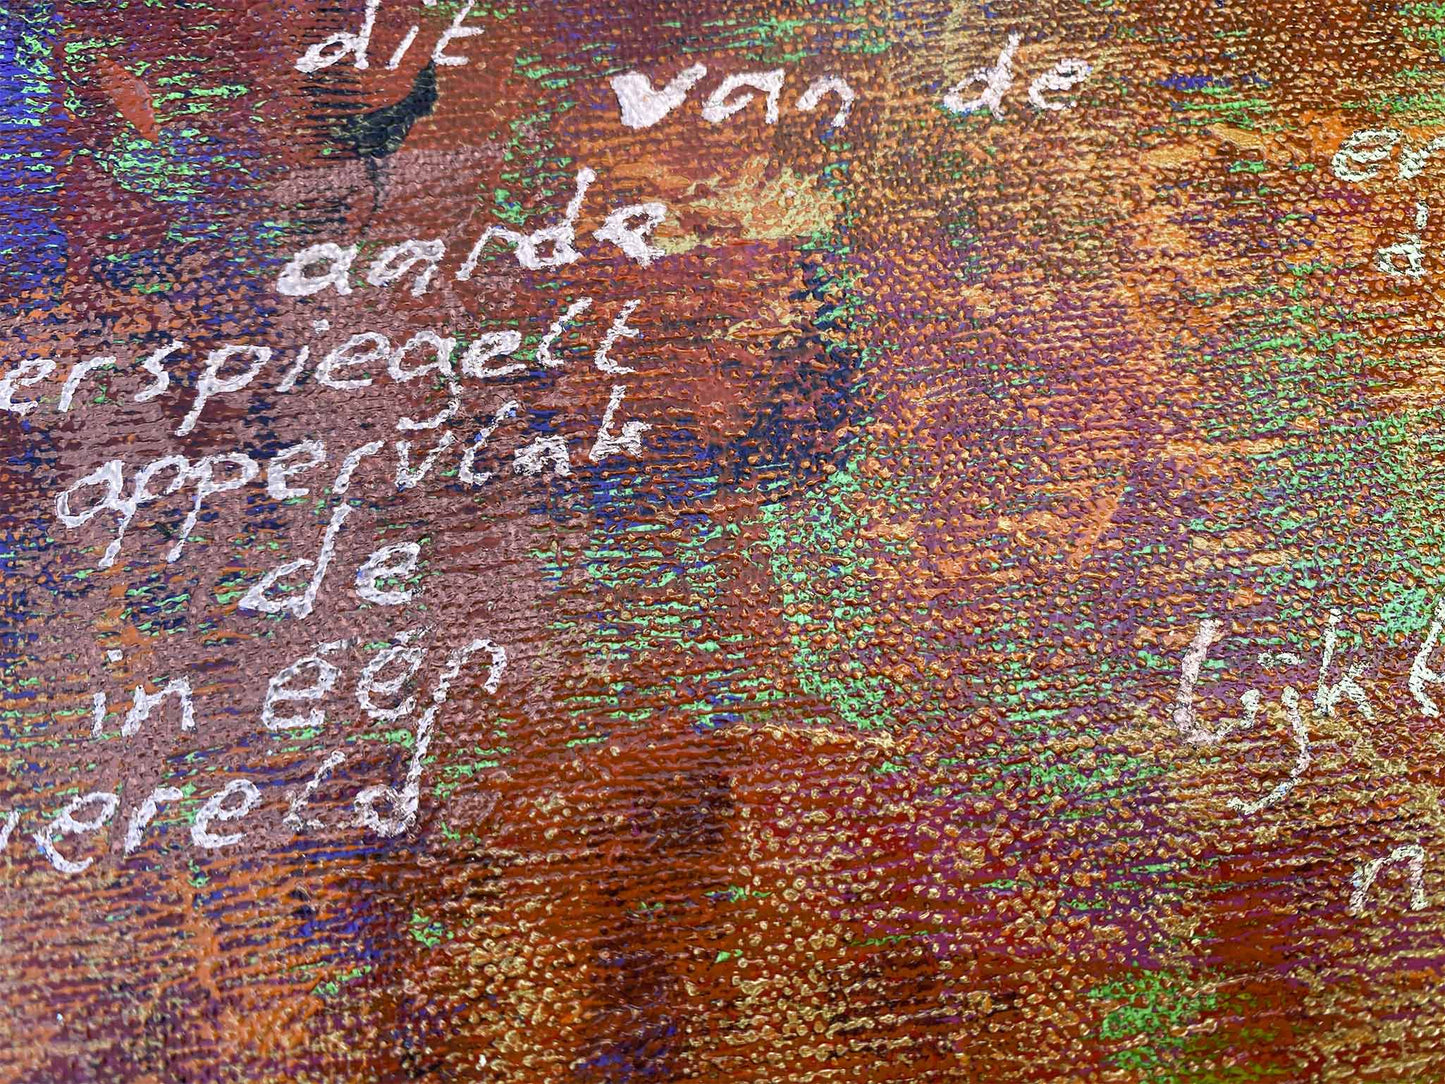 dit
van de
aarde
erspiegelt
oppervlak
de
in één
wereld
er
di
lijk
n